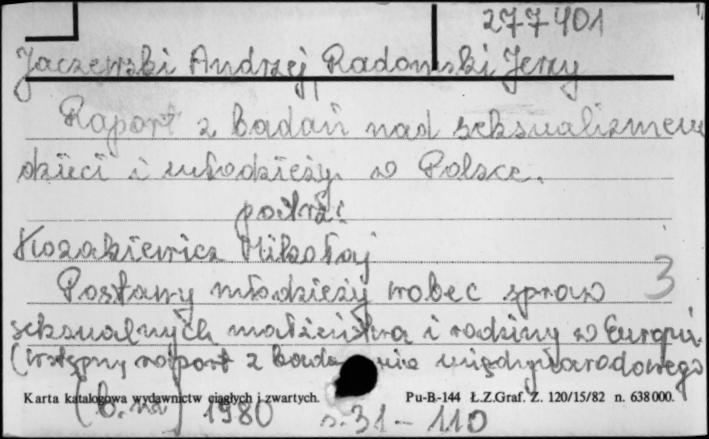 277401
Jaczewski Andrzej, Radomski Jerzy
Raport z badań nad seksualizmem
dzieci i młodzieży w Polsce.
patrz:
Kozakiewicz Mikołaj
Postawy młodzieży wobec spraw 3
seksualnych małżeństwa i rodziny w Europie
(wstępny raport z międzynarodowego
Karta katalogowa wydawnictw ciągłych i zwartych. Pu-B-144 Ł.Z.Graf. Z. 120/15/82 n. 638000.
1980 s. 31 - 110